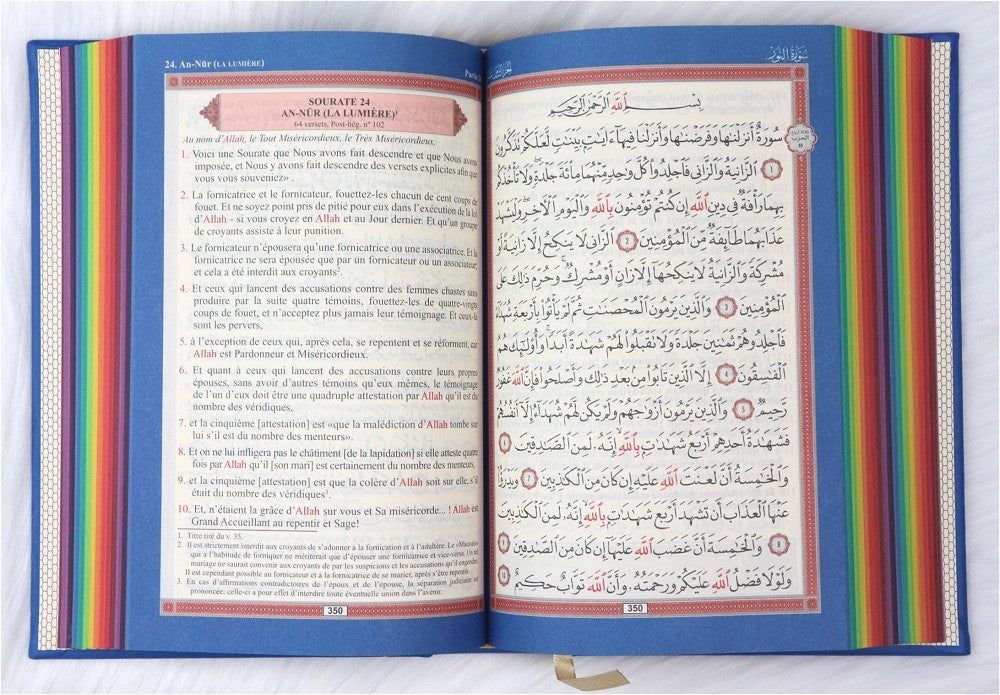 24. An-Nūr (LA LUMIÈRE)
Partie
SOURATE 24
AN-NŪR (LA LUMIÈRE)¹
64 versets, Post-hég. n° 102
Au nom d'Allah, le Tout Miséricordieux, le Très Miséricordieux.
1. Voici une Sourate que Nous avons fait descendre et que Nous avons
imposée, et Nous y avons fait descendre des versets explicites afin que
vous vous souveniez» .
2. La fornicatrice et le fornicateur, fouettez-les chacun de cent coups de
fouet. Et ne soyez point pris de pitié pour eux dans l'exécution de la loi
d'Allah - si vous croyez en Allah et au Jour dernier. Et qu'un groupe
de croyants assiste à leur punition.
3. Le fornicateur n'épousera qu'une fornicatrice ou une associatrice. Et la
fornicatrice ne sera épousée que par un fornicateur ou un associateur;
et cela a été interdit aux croyants².
4. Et ceux qui lancent des accusations contre des femmes chastes sans
produire par la suite quatre témoins, fouettez-les de quatre-vingts
coups de fouet, et n'acceptez plus jamais leur témoignage. Et ceux-là
sont les pervers,
5. à l'exception de ceux qui, après cela, se repentent et se réforment, car
Allah est Pardonneur et Miséricordieux.
6. Et quant à ceux qui lancent des accusations contre leurs propres
épouses, sans avoir d'autres témoins qu'eux mêmes, le témoignage
de l'un d'eux doit être une quadruple attestation par Allah qu'il est du
nombre des véridiques,
7. et la cinquième [attestation] est «que la malédiction d'Allah tombe sur
lui s'il est du nombre des menteurs».
8. Et on ne lui infligera pas le châtiment [de la lapidation] si elle atteste quatre
fois par Allah qu'il [son mari] est certainement du nombre des menteurs,
9. et la cinquième [attestation] est que la colère d'Allah soit sur elle, s'il
était du nombre des véridiques³.
10. Et, n'étaient la grâce d'Allah sur vous et Sa miséricorde...! Allah est
Grand Accueillant au repentir et Sage!
1. Titre tiré du v. 35.
2. Il est strictement interdit aux croyants de s'adonner à la fornication et à l'adultère. Le «Musulman
qui a l'habitude de forniquer ne mériterait que d'épouser une fornicatrice et vice-versa. Un tel
mariage ne saurait convenir aux croyants de par les suspicions et les accusations qu'il engendre.
Il est cependant possible au fornicateur et à la fornicatrice de se marier, après s'être repentis.
3. En cas d'affirmations contradictoires de l'époux et de l'épouse, la séparation judiciaire est
prononcée; celle-ci a pour effet d'interdire toute éventuelle union dans l'avenir.
350
سُورَةُ النُّورِ
بِسْمِ اللَّهِ الرَّحْمَنِ الرَّحِيمِ
سُورَةٌ أَنزَلْنَٰهَا وَفَرَضْنَٰهَا وَأَنزَلْنَا فِيهَآ ءَايَٰتٍۭ بَيِّنَٰتٍ لَّعَلَّكُمْ تَذَكَّرُونَ
١ ٱلزَّانِيَةُ وَٱلزَّانِى فَٱجْلِدُوا۟ كُلَّ وَٰحِدٍ مِّنْهُمَا مِا۟ئَةَ جَلْدَةٍ وَلَا تَأْخُذْكُم
بِهِمَا رَأْفَةٌ فِى دِينِ ٱللَّهِ إِن كُنتُمْ تُؤْمِنُونَ بِٱللَّهِ وَٱلْيَوْمِ ٱلْءَاخِرِ وَلْيَشْهَدْ
عَذَابَهُمَا طَآئِفَةٌ مِّنَ ٱلْمُؤْمِنِينَ ٢ ٱلزَّانِى لَا يَنكِحُ إِلَّا زَانِيَةً أَوْ
مُشْرِكَةً وَٱلزَّانِيَةُ لَا يَنكِحُهَآ إِلَّا زَانٍ أَوْ مُشْرِكٌ وَحُرِّمَ ذَٰلِكَ عَلَى
ٱلْمُؤْمِنِينَ ٣ وَٱلَّذِينَ يَرْمُونَ ٱلْمُحْصَنَٰتِ ثُمَّ لَمْ يَأْتُوا۟ بِأَرْبَعَةِ شُهَدَآءَ
فَٱجْلِدُوهُمْ ثَمَٰنِينَ جَلْدَةً وَلَا تَقْبَلُوا۟ لَهُمْ شَهَٰدَةً أَبَدًا وَأُو۟لَٰٓئِكَ هُمُ
ٱلْفَٰسِقُونَ ٤ إِلَّا ٱلَّذِينَ تَابُوا۟ مِنۢ بَعْدِ ذَٰلِكَ وَأَصْلَحُوا۟ فَإِنَّ ٱللَّهَ غَفُورٌ
رَّحِيمٌ ٥ وَٱلَّذِينَ يَرْمُونَ أَزْوَٰجَهُمْ وَلَمْ يَكُن لَّهُمْ شُهَدَآءُ إِلَّآ أَنفُسُهُمْ
فَشَهَٰدَةُ أَحَدِهِمْ أَرْبَعُ شَهَٰدَٰتٍۭ بِٱللَّهِ إِنَّهُۥ لَمِنَ ٱلصَّٰدِقِينَ ٦
وَٱلْخَٰمِسَةُ أَنَّ لَعْنَتَ ٱللَّهِ عَلَيْهِ إِن كَانَ مِنَ ٱلْكَٰذِبِينَ ٧ وَيَدْرَؤُا۟
عَنْهَا ٱلْعَذَابَ أَن تَشْهَدَ أَرْبَعَ شَهَٰدَٰتٍۭ بِٱللَّهِ إِنَّهُۥ لَمِنَ ٱلْكَٰذِبِينَ
٨ وَٱلْخَٰمِسَةَ أَنَّ غَضَبَ ٱللَّهِ عَلَيْهَآ إِن كَانَ مِنَ ٱلصَّٰدِقِينَ ٩
وَلَوْلَا فَضْلُ ٱللَّهِ عَلَيْكُمْ وَرَحْمَتُهُۥ وَأَنَّ ٱللَّهَ تَوَّابٌ حَكِيمٌ ١٠
350